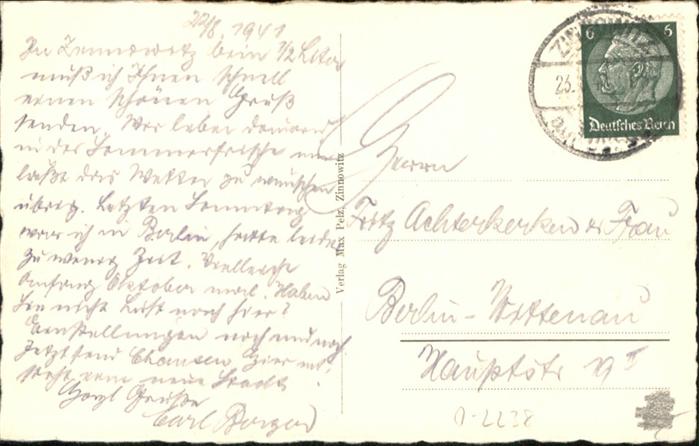 22/8. 1941
In Zinnowitz beim 1/2 Liter
muß ich Ihnen schnell
einen schönen Gruß
senden. Wir leben
in der Sommerfrische nur
läßt das Wetter zu wünschen
übrig. Letzten Sonntag
war ich in Berlin, hatte leider
zu wenig Zeit. Vielleicht
Anfang Oktober mal. Haben
Sie nicht Lust nach hier?
Einstellungen noch und noch
Jetzt sind Chancen. Hier
eine neue Stadt.
Herzl Grüße
Carl
Verlag Max Pelz, Zinnowitz
Herrn
Fritz Achterkerken u Frau
Berlin-Wittenau
Hauptstr 9 II
6
Deutsches Reich
ZINNOWITZ
23.